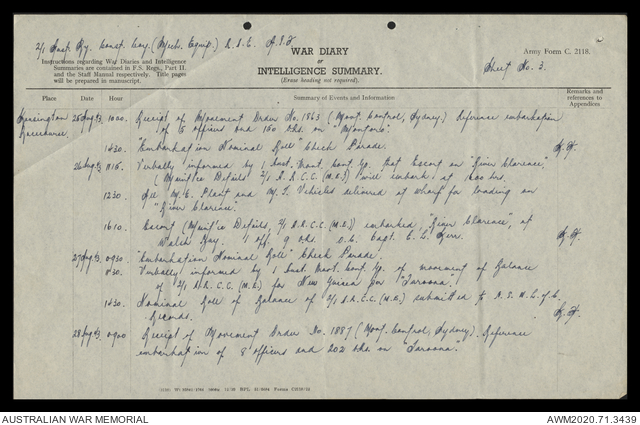 2/1 Aust. Ry. Const. Coy. (Mech. Equip.) R.A.E. A.I.F
WAR DIARY
or
INTELLIGENCE SUMMARY.
(Erase heading not required).
Army Form C. 2118.
Sheet No. 3.
Instructions regarding War Diaries and Intelligence
Summaries are contained in F.S. Regs., Part II.
and the Staff Manual respectively. Title pages
will be prepared in manuscript.
Place Date Hour Summary of Events and Information Remarks and references to Appendices
Kensington Racecourse 25 Aug 43 1000 Receipt of Movement Order No. 1863 (Movt. Control, Sydney) Reference embarkation
of 5 officers and 150 ORs. on "Montoro".
1430 "Embarkation Nominal Roll" Check Parade.
26 Aug 43 1115 Verbally informed by 1 Aust. Movt. Cont. Gp. that Escort on "River Clarence"
will embark at
1230 All M.E. Plant and M.T. Vehicles delivered at wharf for loading on
"River Clarence".
1610 Escort embarked, "River Clarence", at
Walsh Bay. 1 Off. 9 ORs. O.C. Capt. E. L. Kerr.
27 Aug 43 0930 "Embarkation Nominal Roll" Check Parade.
Verbally informed by 1 Aust. Movt. Cont. Gp. of movement of Balance
of for New Guinea per "Taroona".
1430 Nominal Roll of Balance of submitted to
Records.
28 Aug 43 0900 Receipt of Movement Order No. 1887 (Movt. Control, Sydney). Reference
embarkation of 8 officers and 202 ORs. on "Taroona".
AUSTRALIAN WAR MEMORIAL AWM2020.71.3439